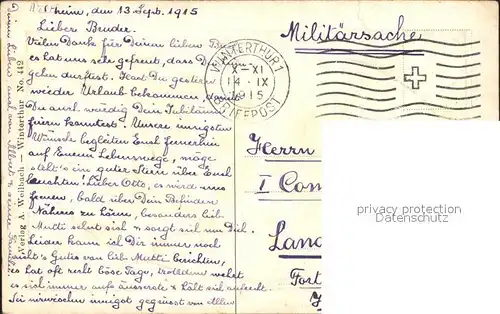 Veltheim, den 13 Sept. 1915
Lieber Bruder.
Vielen Dank für Deinen lieben
es hat uns sehr gefreut, dass D
gehen durftest. Hast Du gestern
wieder Urlaub bekommen, damit
Du auch würdig Dein Jubiläum
feiern konntest. Unsere innigsten
Wünsche begleiten Euch fernerhin
auf Eurem Lebenswege, möge
stets ein guter Stern über Euch
leuchten! Lieber Otto, es wird uns
freuen, bald über Dein Befinden
Näheres zu hören, besonders lieb.
Mutti sehnt sich n sorgt sich um Dich.
Leider kann ich Dir immer noch
nicht's Gutes von lieb. Mutti berichten,
es hat oft recht böse Tage, trotzdem wehrt
es sich immer aufs äusserste & hält sich aufrecht.
Sei nun innigst gegrüsst von Allen
Verlag A. Weilbach — Winterthur No. 412
Militärsache
WINTERTHUR 1
X-XI
14·IX
1915
(BRIEFPOST)
Herrn
I Com
Land
Fort
privacy protection
ansichtskarten-center.de